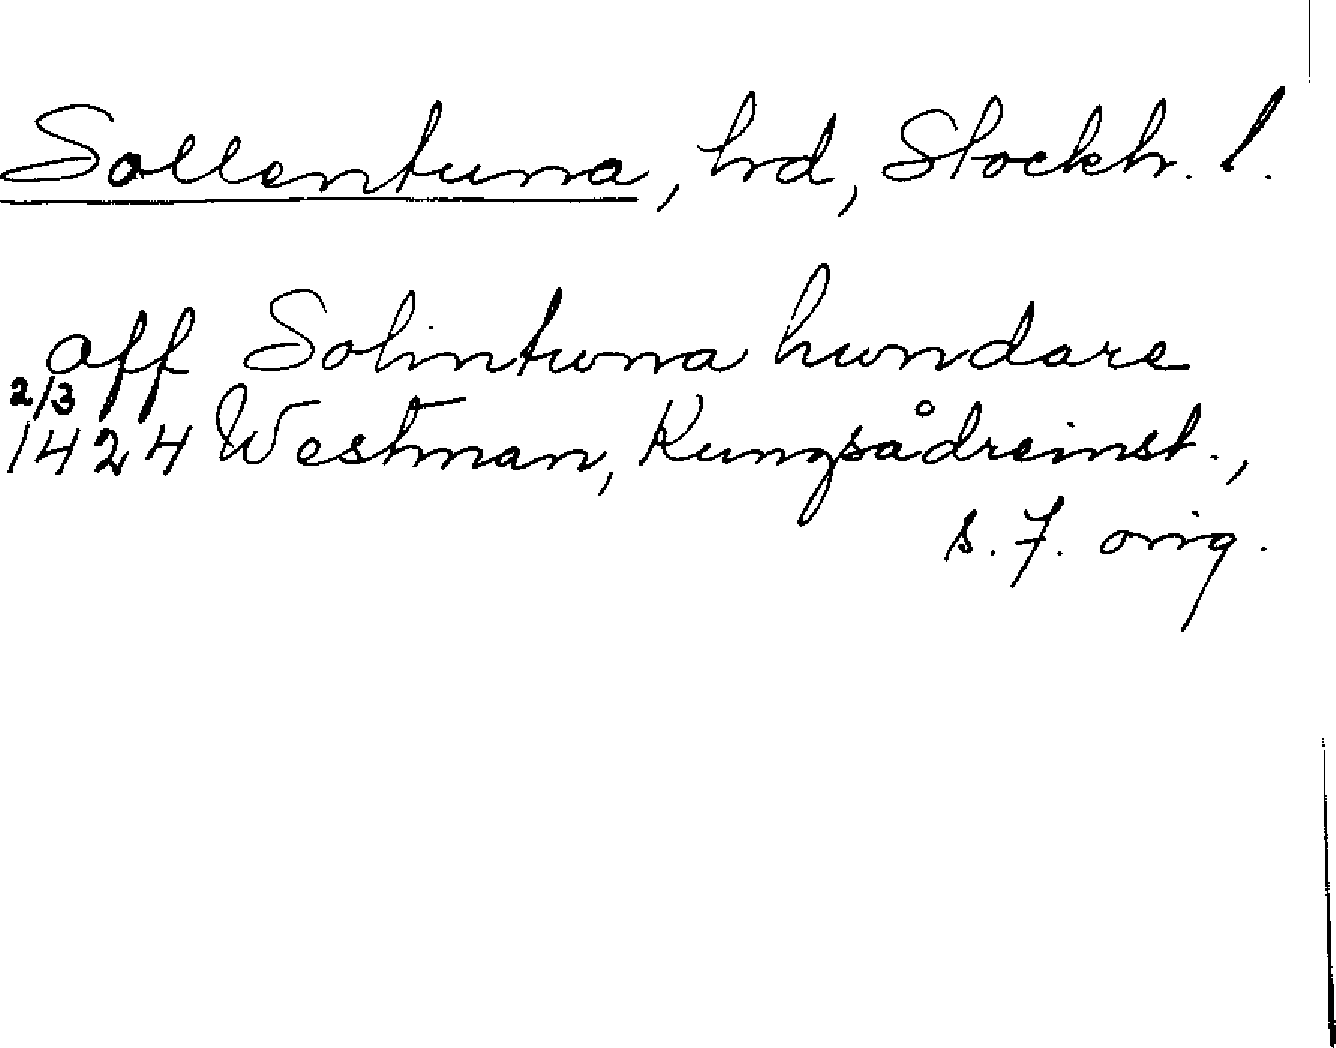 Sollentuna, hrd, Stockh. l.
aff Solintuna hundare
2/3
1424 Westman, Kungsådreinst.,
s. 7. orig.